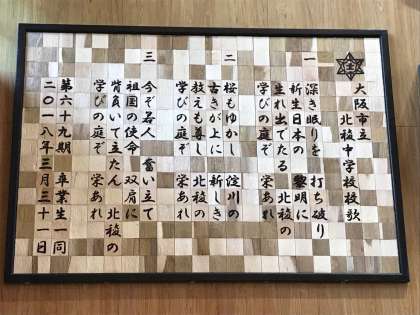 大阪市立
北稜中学校校歌
一
深き眠りを 打ち破り
新生日本の 黎明に
生れ出でたる 北稜の
学びの庭ぞ 栄あれ
二
桜もゆかし 淀川の
古きが上に 新しき
教えも尊し 北稜の
学びの庭ぞ 栄あれ
三
今ぞ若人 奮い立て
祖国の使命 双肩に
背負いて立たん 北稜の
学びの庭ぞ 栄あれ
第六十九期 卒業生一同
二〇一八年三月三十一日